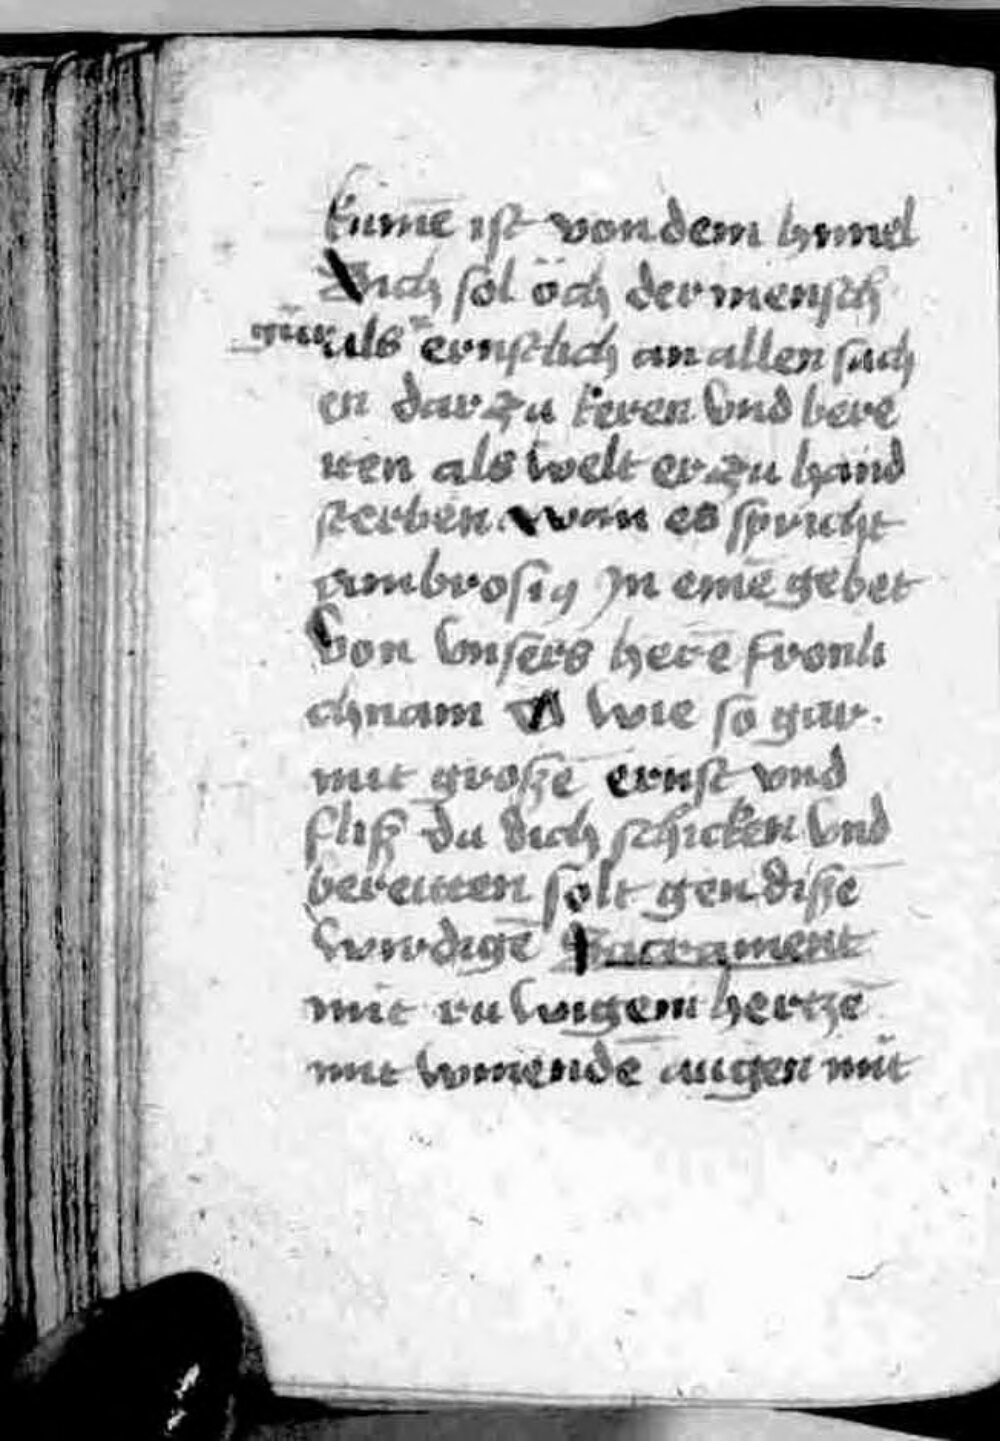 kumē ist von dem hymel
Sich sol öch der mensch
als ernstlich an allen sach
en dar zu keren vnd bere
iten als welt er zu hand
sterben. wan es spricht
ambrosiꝰ Jn eimē gebet
von vnsers herē fronli
chnam O wie so gar.
mit groszē ernst vnd
flisz du dich schicken vnd
bereitten solt gen disē
wirdigē Sacrament
mit ruwigem hertzē
mit winendē augen mit